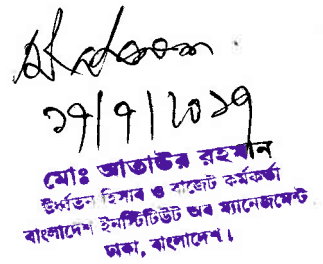 ২৭/৭/২০১৭
মোঃ আতাউর রহমান
ঊর্ধ্বতন হিসাব ও বাজেট কর্মকর্তা
বাংলাদেশ ইনস্টিটিউট অব ম্যানেজমেন্ট
ঢাকা, বাংলাদেশ।